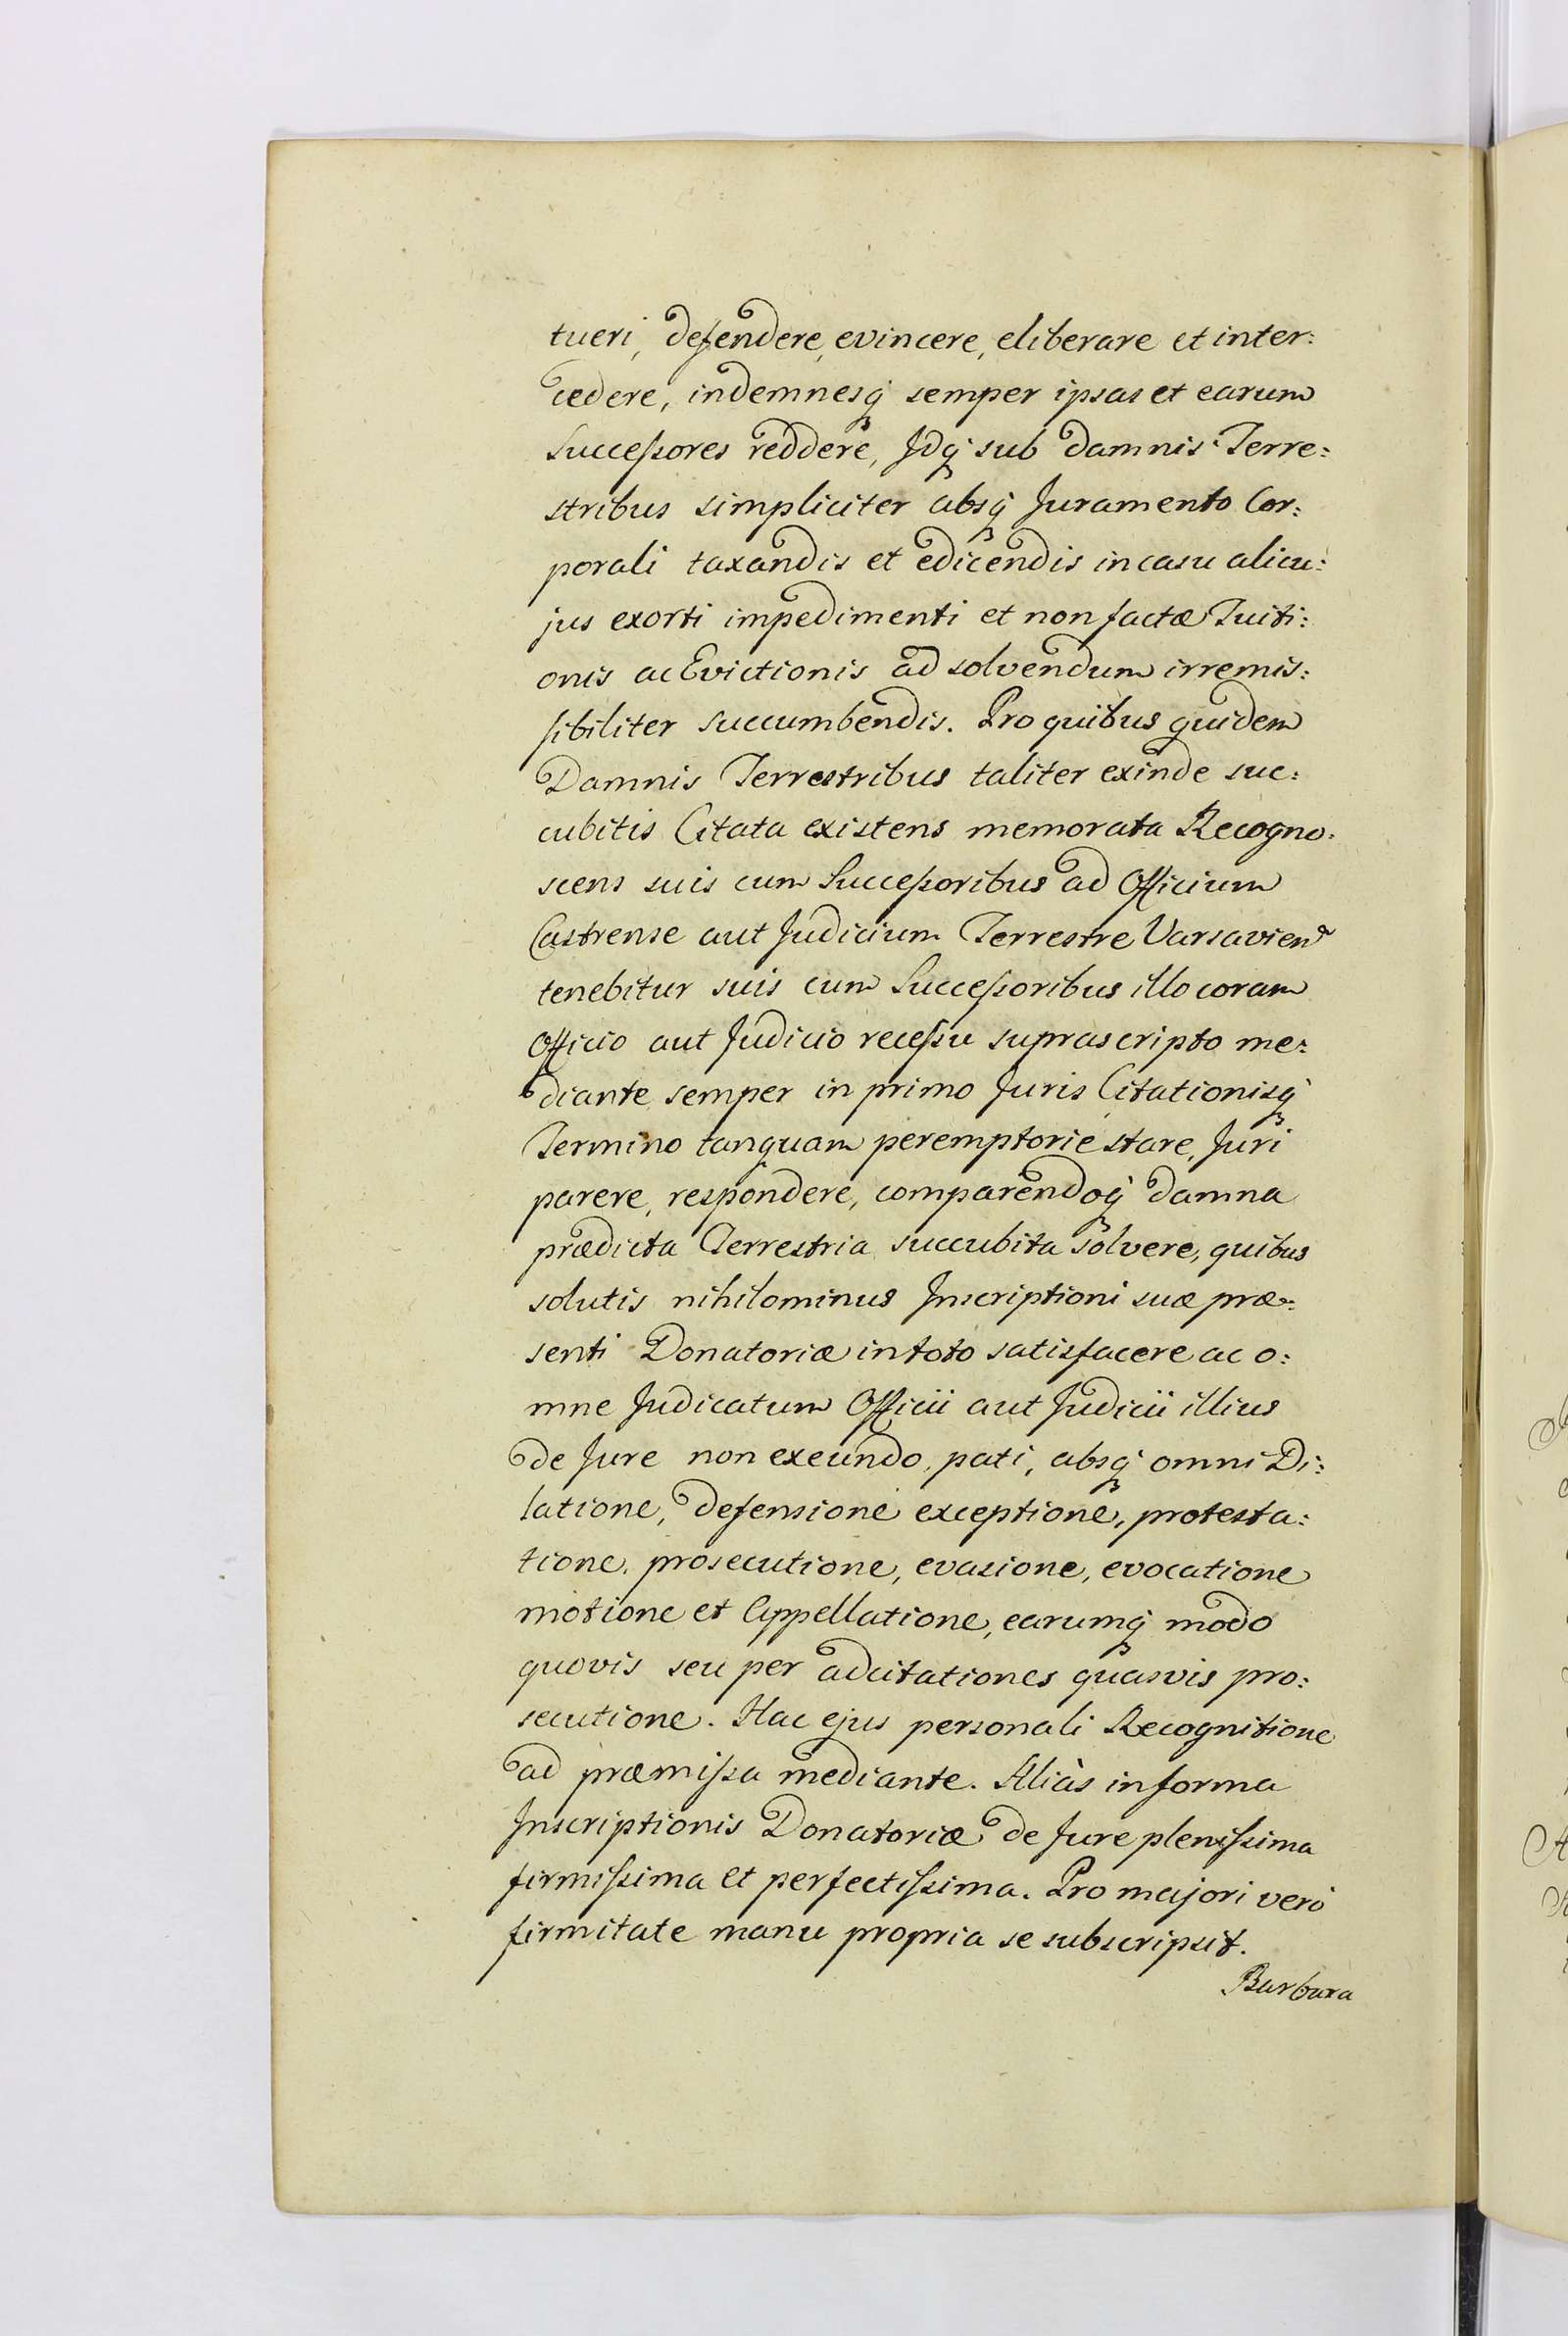 tueri, defendere, evincere, eliberare et inter:
cedere, indemnesq́ʒ semper ipsas et earum
Succeßores reddere, Idq́ʒ sub damnis Terre:
stribus simpliciter absq́ʒ Juramento Cor:
porali taxandis et edicendis in casu alicu:
jus exorti impedimenti et non factæ Tuiti:
onis ac Evictionis ad solvendum irremis:
sibiliter succumbendis. Pro quibus quidem
Damnis Terrestribus taliter exinde suc:
cubitis Citata existens memorata Recogno:
scens suis cum Succeßoribus ad Officium
Castrense aut Judicium Terrestre Varsavien
tenebitur suis cum Succeßoribus illo coram
Officio aut Judicio receßu suprascripto me:
diante semper in primo Juris Citationisq́ʒ
Termino tanquam peremptorie stare, Juri
parere, respondere, comparendoq́ʒ damna
prædicta Terrestria succubita solvere, quibus
solutis nihilominus Inscriptioni suæ præ:
senti Donatoriæ in toto satisfacere ac o:
mne Judicatum Officii aut Judicii illius
de Jure non exeundo, pati, absq́ʒ omni Di:
latione, defensione exceptione, protesta:
tione, prosecutione, evasione, evocatione
motione et Appellatione, earumq́ʒ modo
quovis seu per adcitationes quasvis pro:
secutione. Hac ejus personali Recognitione
ad præmißa mediante. Aliàs in forma
Inscriptionis Donatoriæ de Jure plenißima
firmißima et perfectißima. Pro majori verò
firmitate manu propria se subscripsit.
Barbara